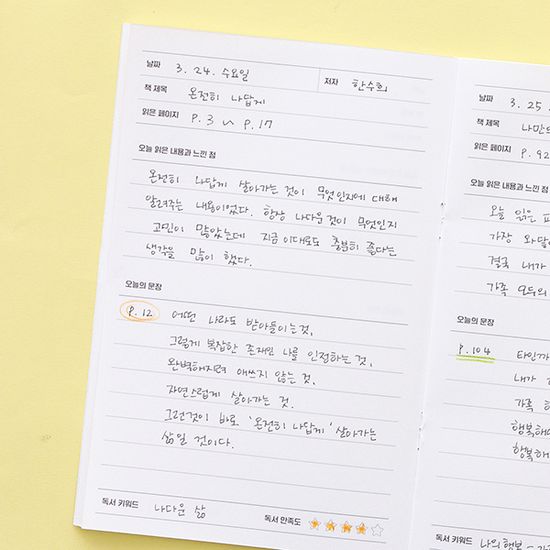 날짜 3. 24. 수요일 저자 한수희
책 제목 온전히 나답게
읽은 페이지 P. 3 ~ P. 17
오늘 읽은 내용과 느낀 점
온전히 나답게 살아가는 것이 무엇인지에 대해
알려주는 내용이었다. 항상 나다운 것이 무엇인지
고민이 많았는데 지금 이대로도 충분히 좋다는
생각을 많이 했다.
오늘의 문장
P. 12 어떤 나라도 받아들이는 것,
그렇게 복잡한 존재인 나를 인정하는 것,
완벽해지려 애쓰지 않는 것,
자연스럽게 살아가는 것.
그런것이 바로 '온전히 나답게' 살아가는
삶일 것이다.
독서 키워드 나다운 삶 독서 만족도
날짜 3. 25.
책 제목 나만의
읽은 페이지 P. 92
오늘 읽은 내용과 느낀 점
오늘 읽은
가장 와닿
결국 내가
가족 모두의
오늘의 문장
P. 104 타인까
내가
가족
행복해
행복해
독서 키워드 나의 행복